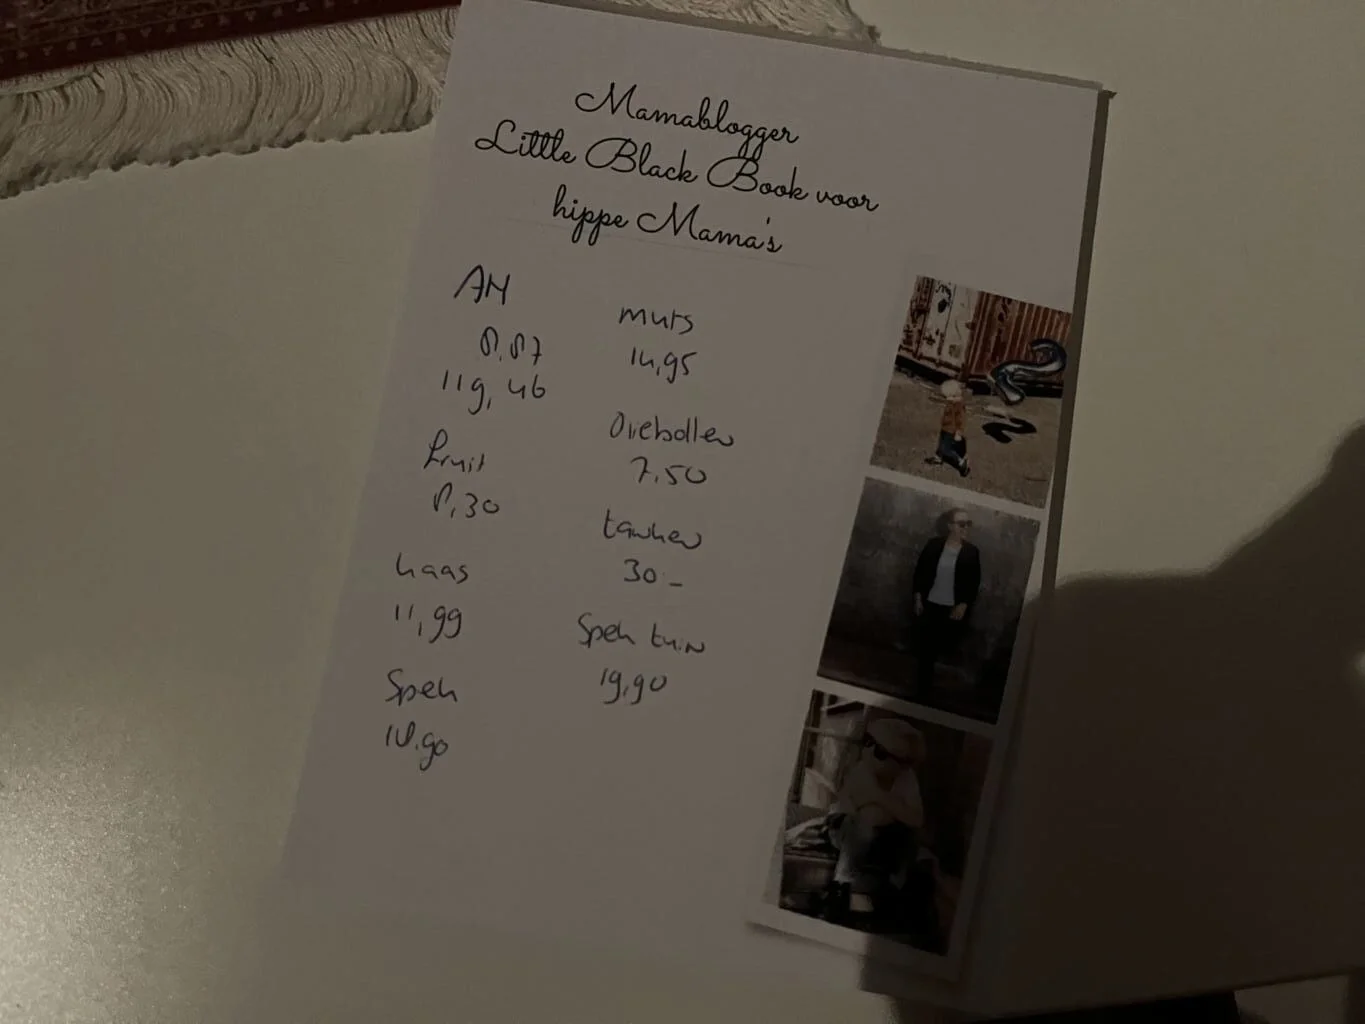 Mamablogger
Little Black Book voor
hippe Mama's
AH
8,87
119,46
fruit
8,30
haas
11,99
Speh
18.90
muts
14,95
Oliebollen
7.50
tanken
30.-
Speh tuin
19,90